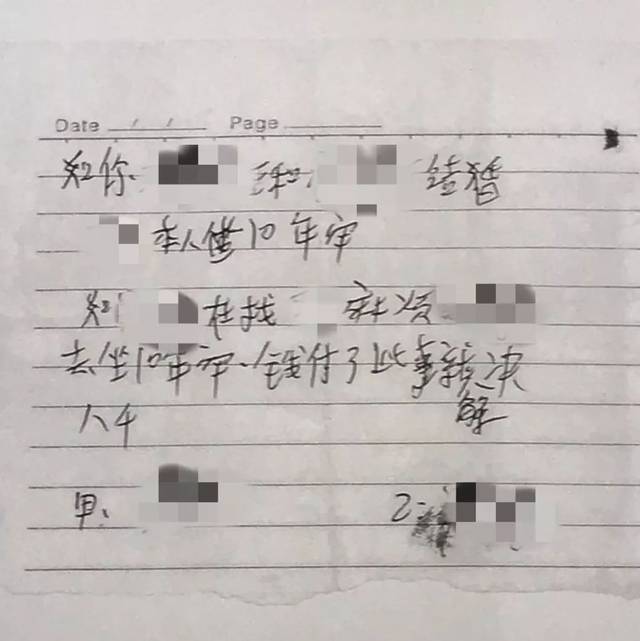 Date / / Page
如你 和 结婚
本人做10年牢
如 在找 麻烦
去坐10年牢、钱付了此事就决
八千 解
甲、 乙: